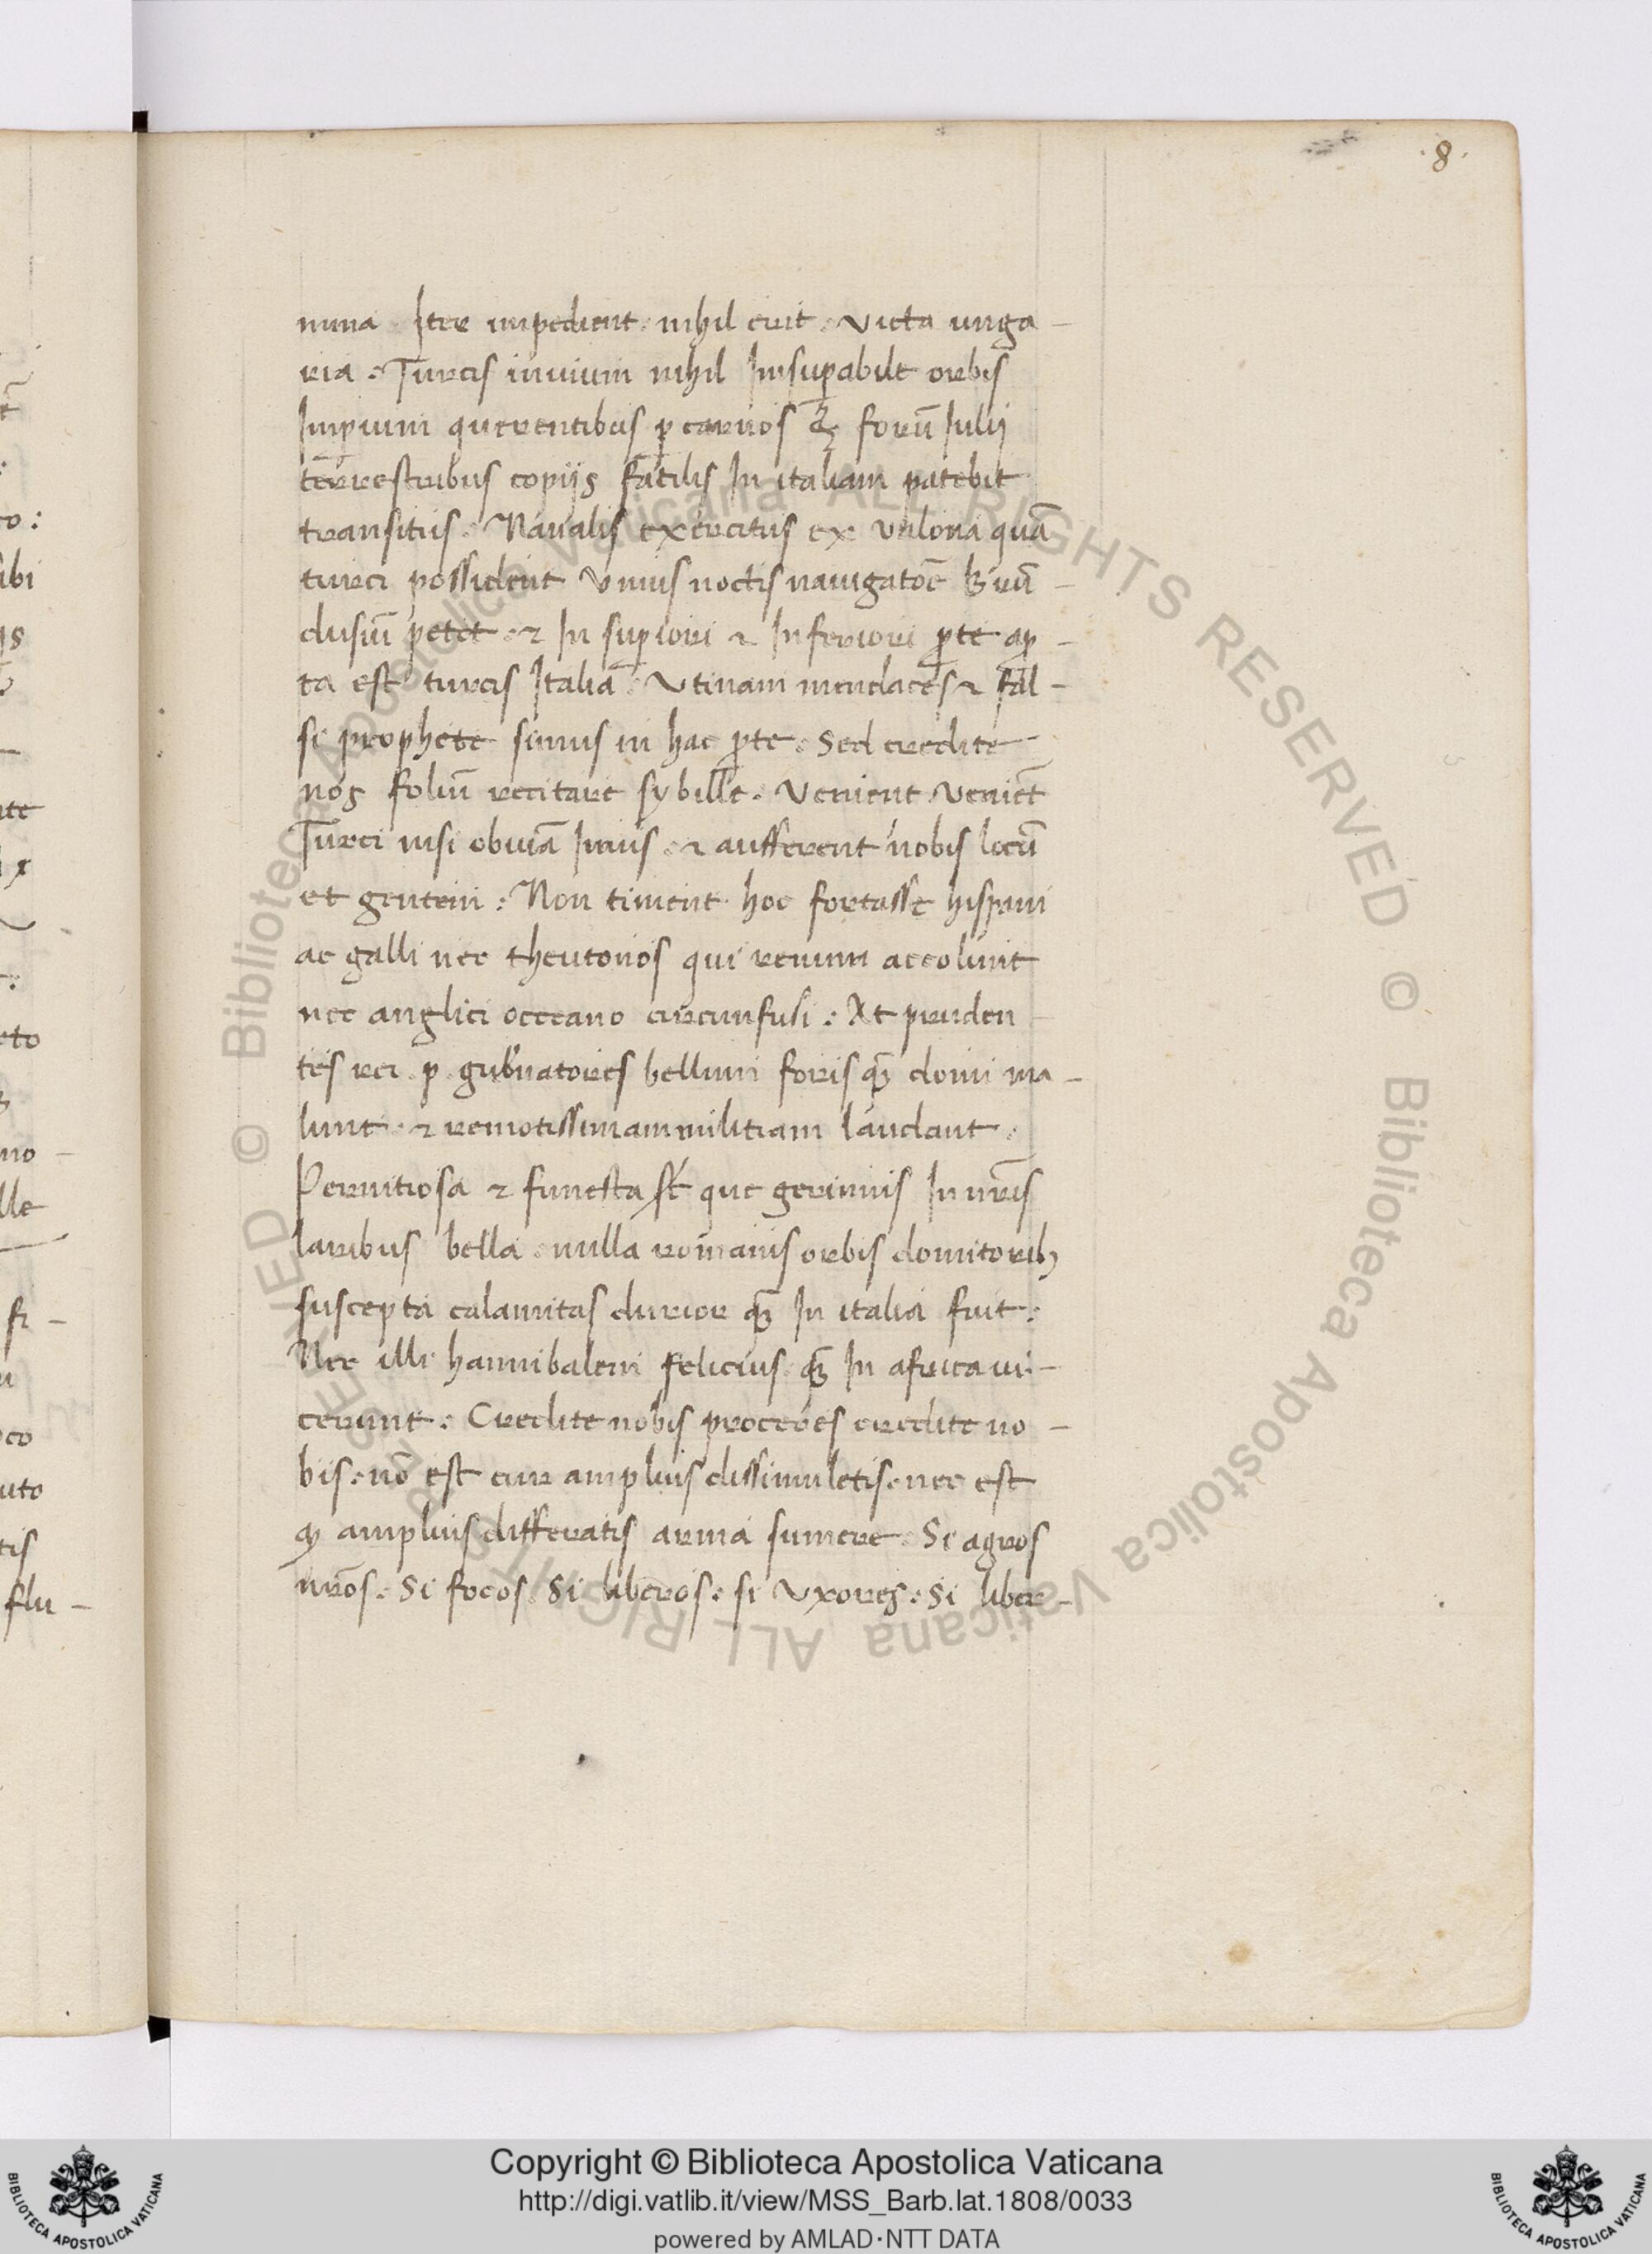 .8.
mina Iter impedient. nihil erit. Victa unga-
ria. Turcis invium nihil Insuꝑabile orbis
Imꝑium querentibus ꝑ carnos & forū Iulij
terrestribus copijs facilis In italiam patebit
transitus. Navalis exercitus ex Valona quā
turci possident Unius noctis navigatoē Brū-
dusiū petet. ⁊ In suꝑiori ⁊ Inferiori ꝑte aꝑ-
ta est turcis Italia. Utinam mendaces ⁊ fal-
si prophete simus in hac ꝑte. Sed credite
nos foliū recitare sybille. Venient. veniēt
Turci nisi obviā Imus. ⁊ aufferent nobis locū
et gentem: Non timent hoc fortasse hispani
ac galli nec theutonos qui renum accolunt
nec anglici occeano circumfusi: At pruden
tes rei .p. gub'natores bellum foris quā domi ma-
lunt. ⁊ remotissimam militiam laudant.
Pernitiosa ⁊ funesta st́ que gerimus In nr̄is
laribus bella. nulla romanis orbis domitoribꝫ
suscepta calamitas durior quā In italia fuit:
Nec illi hannibalem felicius quā In africa vi-
cerunt: Credite nobis proceres credite no-
bis. nō est cur amplius dissimuletis. nec est
ꝙ amplius differatis arma sumere. Si agros
nr̄os. Si focos Si liberos. si Uxores. Si liber-
ro:
ibi
js
te
x
eto
no-
lle
fi-
oco
uto
tis
flu-
© Biblioteca Apostolica Vaticana ALL RIGHTS RESERVED © Biblioteca Apostolica Vaticana ALL RIGHTS RESERVED
Copyright © Biblioteca Apostolica Vaticana
http://digi.vatlib.it/view/MSS_Barb.lat.1808/0033
powered by AMLAD·NTT DATA
BIBLIOTECA APOSTOLICA VATICANA
BIBLIOTECA APOSTOLICA VATICANA